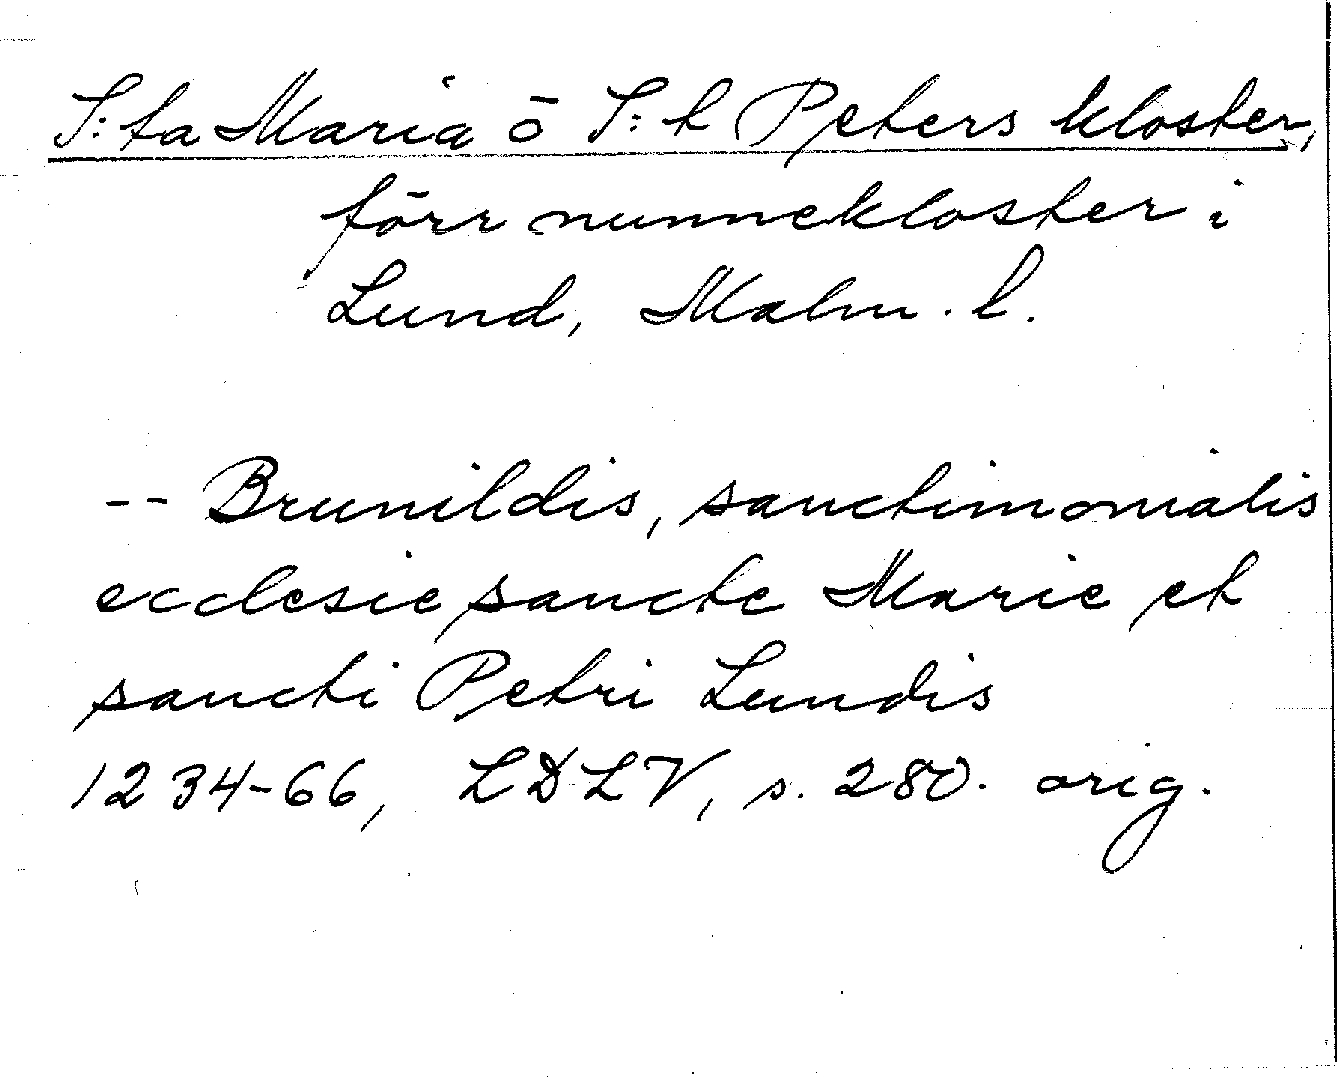 S:ta Maria o S:t Peters kloster,
förr nunnekloster i
Lund, Malm. l.
-- Brunildis, sanctimonialis
ecclesie sancte Marie et
sancti Petri Lundis
1234-66, LDLV, s. 280. orig.